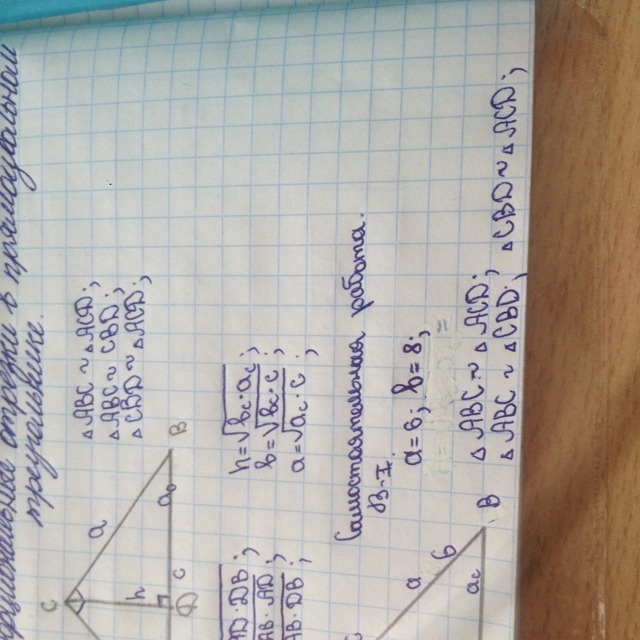 отрезки в прямоугольном
треугольнике.
C
a
h
c
D
B
△ABC ~ △ACD;
△ABC ~ △CBD;
△CBD ~ △ACD;
AD·DB;
AB·AD
AB·DB;
h=√bc·ac;
b=√bc·c;
a=√ac·c;
Самостоятельная работа.
В-I.
a=6; b=8;
△ABC ~ △ACD;
△ABC ~ △CBD; △CBD ~ △ACD;
a
6
ac
B